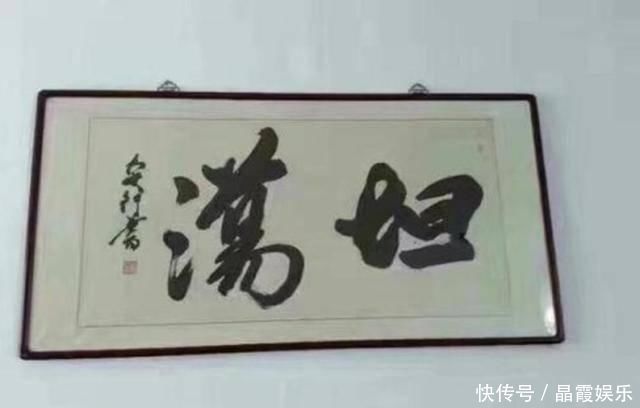 坦蕩
快传号/晶霞娱乐